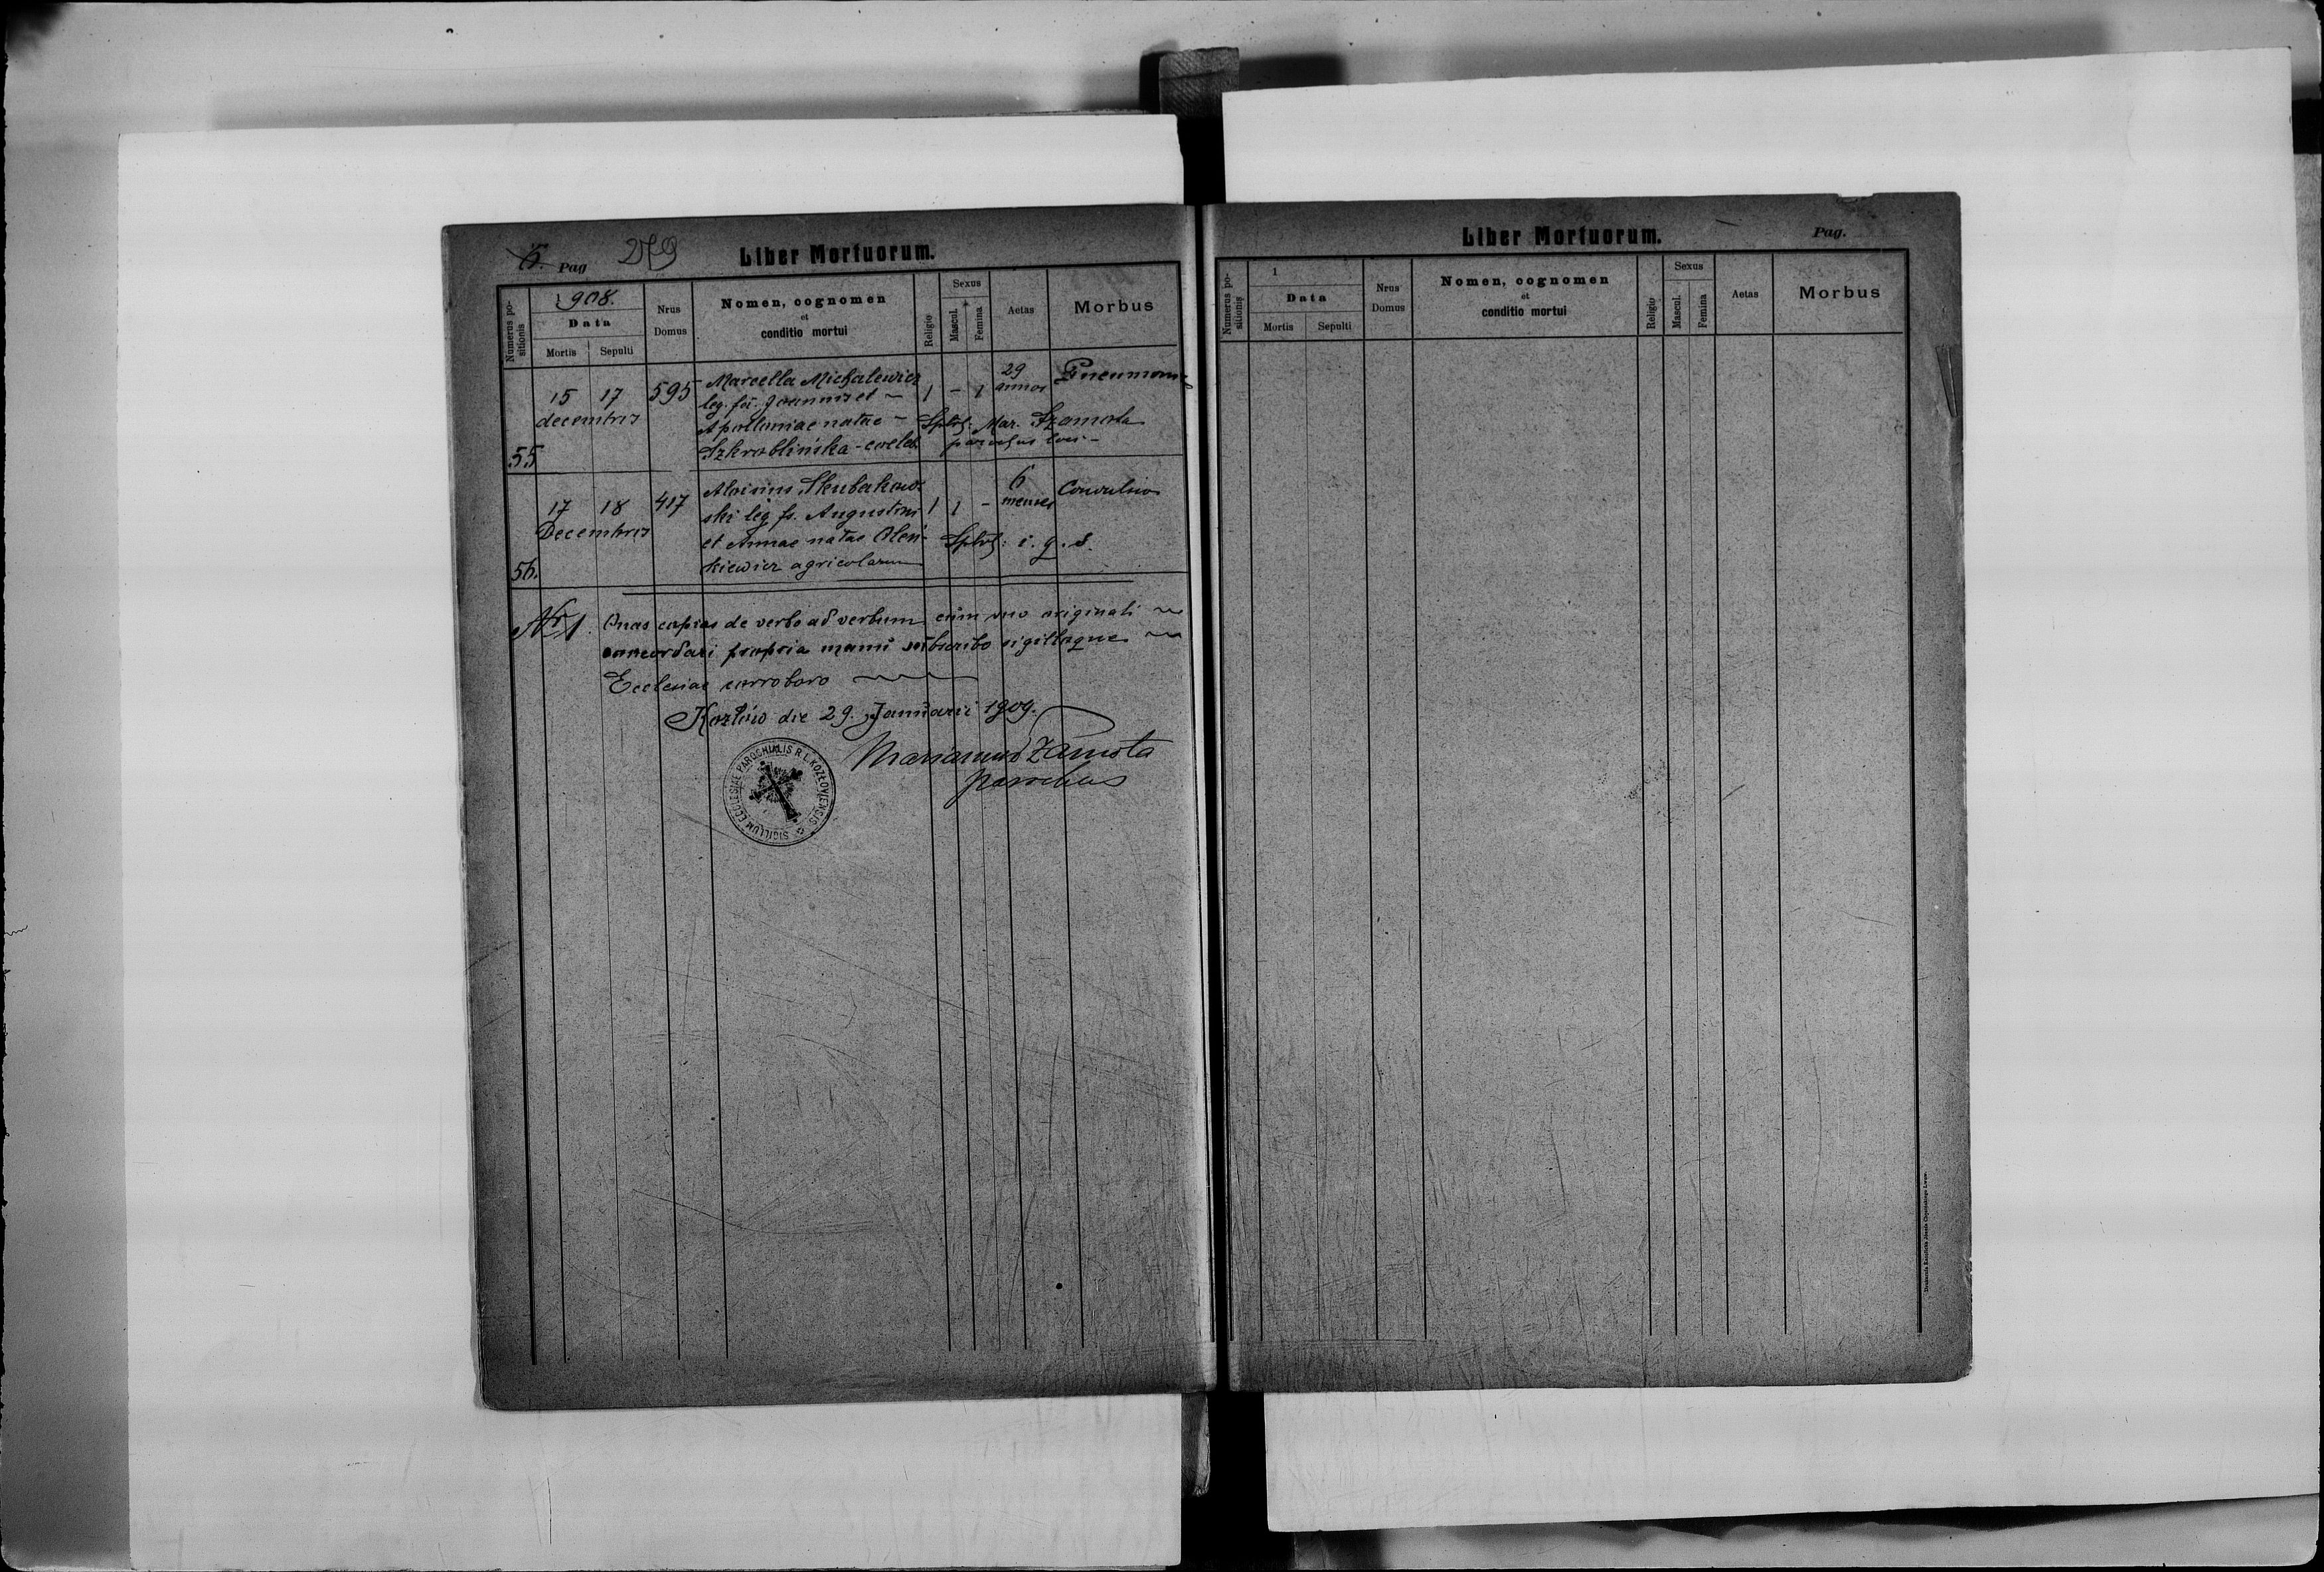 6. Pag 279 Liber Mortuorum.
Numerus positionis
1908.
Data
Mortis Sepulti
Nrus Domus
Nomen, cognomen
et
conditio mortui
Religio
Sexus
Mascul. Femina
Aetas
Morbus
55
15 17
decembris
595
Marcella Michalewicz
leg. fa. Joannis et
Apolloniae natae
Szkroblińska - caeleb.
1 - 1
29
annos
Pneumoni
Splvf: Mar. Szamota
parochus loci -
56.
17 18
Decembris
417
Aloisius Skubakow-
ski leg. fs. Augustini
et Annae natae Oleń-
kiewicz agricolarum
1 1 -
6
menses
Convulsio
Splvf: i. q. s.
Nr 1. Quas copias de verbo ad verbum cum suo originali
concordari propria manu subscribo sigilloque
Ecclesiae corroboro
Kozłów die 29. Januarii 1909.
Marianus Szamota
parochus
SIGILLUM ECCLESIAE PAROCHIALIS R. L. KOZŁOVIENSIS
Liber Mortuorum. Pag.
Numerus positionis
1
Data
Mortis Sepulti
Nrus Domus
Nomen, cognomen
et
conditio mortui
Religio
Sexus
Mascul. Femina
Aetas
Morbus